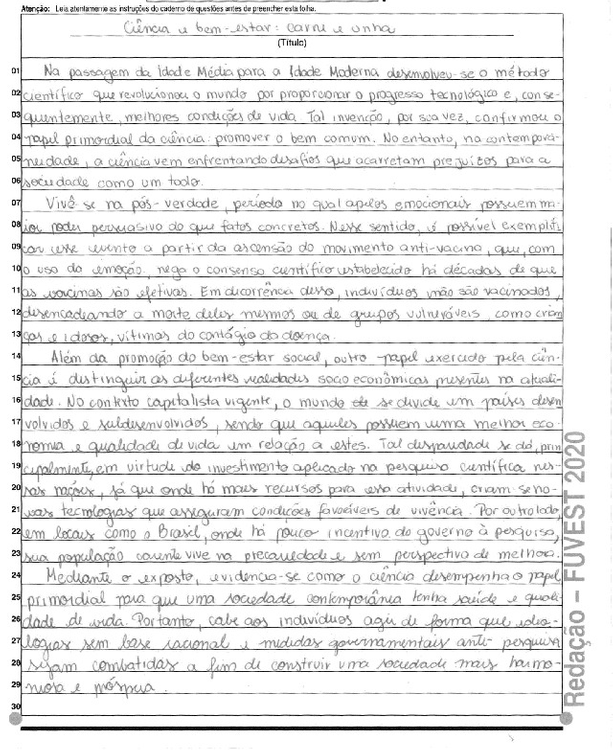 Atenção: Leia atentamente as instruções do caderno de questões antes de preencher esta folha.
Ciência e bem-estar: carne e unha
(Título)
01 Na passagem da Idade Média para a Idade Moderna desenvolveu-se o método
02 científico que revolucionou o mundo por proporcionar o progresso tecnológico e, conse-
03 quentemente, melhores condições de vida. Tal invenção, por sua vez, confirmou o
04 papel primordial da ciência: promover o bem comum. No entanto, na contempora-
05 neidade, a ciência vem enfrentando desafios que acarretam prejuízos para a
06 sociedade como um todo.
07 Vive-se na pós-verdade, período no qual apelos emocionais possuem ma-
08 ior poder persuasivo do que fatos concretos. Nesse sentido, é possível exemplifi-
09 car esse evento a partir da ascensão do movimento anti-vacina, que, com
10 o uso da emoção, nega o consenso científico estabelecido há décadas de que
11 as vacinas são efetivas. Em decorrência disso, indivíduos não são vacinados,
12 desencadeando a morte deles mesmos ou de grupos vulneráveis, como crian-
13 ças e idosos, vítimas do contágio da doença.
14 Além da promoção do bem-estar social, outro papel exercido pela ciên-
15 cia é distinguir as diferentes realidades socioeconômicas presentes na atuali-
16 dade. No contexto capitalista vigente, o mundo se divide em países desen
17 volvidos e subdesenvolvidos, sendo que aqueles possuem uma melhor eco-
18 nomia e qualidade de vida em relação a estes. Tal disparidade se dá, prin
19 cipalmente, em virtude do investimento aplicado na pesquisa científica nes-
20 sas nações, já que onde há mais recursos para essa atividade, criam-se no-
21 vas tecnologias que asseguram condições favoráveis de vivência. Por outro lado,
22 em locais como o Brasil, onde há pouco incentivo do governo à pesquisa,
23 sua população carente vive na precariedade e sem perspectiva de melhora.
24 Mediante o exposto, evidencia-se como a ciência desempenha o papel
25 primordial para que uma sociedade contemporânea tenha saúde e quali-
26 dade de vida. Portanto, cabe aos indivíduos agir de forma que ideo-
27 logias sem base racional e medidas governamentais anti-pesquisa
28 sejam combatidas a fim de construir uma sociedade mais harmo-
29 niosa e próspera.
30
Redação – FUVEST 2020